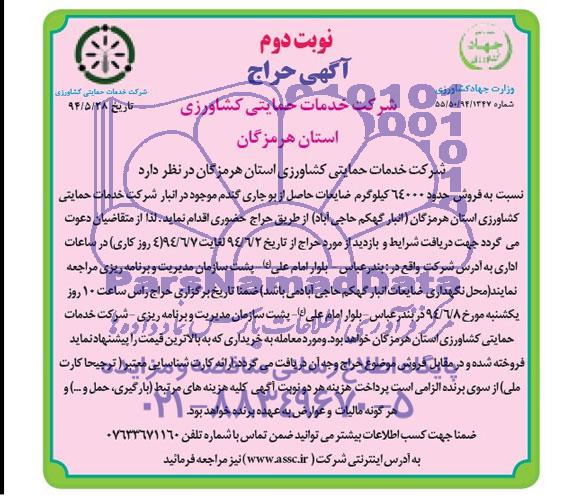 نوبت دوم
آگهی حراج
جهاد
وزارت جهادکشاورزی
شماره ۵۵/۵۰/۹۴/۱۳۴۷
شرکت خدمات حمایتی کشاورزی
تاریخ ۹۴/۵/۲۸
شرکت خدمات حمایتی کشاورزی
استان هرمزگان
شرکت خدمات حمایتی کشاورزی استان هرمزگان در نظر دارد
نسبت به فروش حدود ۶۴۰۰۰ کیلوگرم ضایعات حاصل از بوجاری گندم موجود در انبار شرکت خدمات حمایتی
کشاورزی استان هرمزگان (انبار گهکم حاجی آباد) از طریق حراج حضوری اقدام نماید. لذا از متقاضیان دعوت
می گردد جهت دریافت شرایط و بازدید از مورد حراج از تاریخ ۹۴/۶/۲ لغایت ۹۴/۶/۷(۴ روز کاری) در ساعات
اداری به آدرس شرکت واقع در : بندرعباس – بلوار امام علی(ع)– پشت سازمان مدیریت و برنامه ریزی مراجعه
نمایند(محل نگهداری ضایعات انبار گهکم حاجی آباد می باشد) ضمنا تاریخ برگزاری حراج راس ساعت ۱۰ روز
یکشنبه مورخ ۹۴/۶/۸ در بندرعباس–بلوار امام علی(ع)– پشت سازمان مدیریت و برنامه ریزی – شرکت خدمات
حمایتی کشاورزی استان هرمزگان خواهد بود. ومورد معامله به خریداری که به بالاترین قیمت را پیشنهاد نماید
فروخته شده و در مقابل فروش موضوع حراج وجه آن دریافت می گردد. ارائه کارت شناسایی معتبر( ترجیحا کارت
ملی) از سوی برنده الزامی است پرداخت هزینه هر دو نوبت آگهی کلیه هزینه های مرتبط (بارگیری، حمل و ...) و
هر گونه مالیات و عوارض به عهده برنده خواهد بود.
ضمنا جهت کسب اطلاعات بیشتر می توانید ضمن تماس با شماره تلفن ۰۷۶۳۳۶۷۱۱۶۰
به آدرس اینترنتی شرکت (www.assc.ir) نیز مراجعه فرمائید
ParsNamadData
پایگاه اطلاع رسانی مناقصه و مزایده
۰۲۱-۸۸۳۴۹۶۷۰-۵